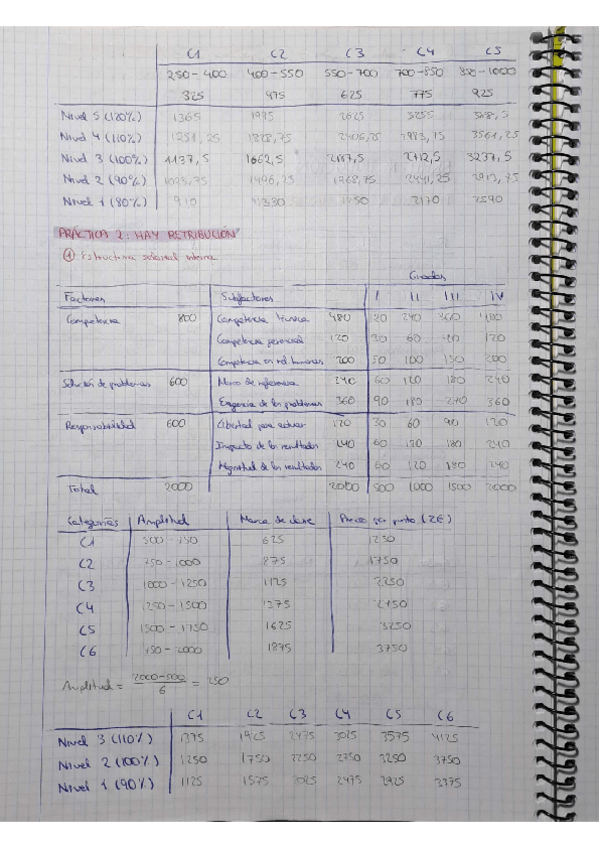 C1 C2 C3 C4 C5
250-400 400-550 550-700 700-850 850-1000
325 475 625 775 925
Nivel 5 (120%) 1365 1995 2625 3255
Nivel 4 (110%) 1251,25 1828,75 2406,25 2983,75 3561,25
Nivel 3 (100%) 1137,5 1662,5 2187,5 2712,5 3237,5
Nivel 2 (90%) 1023,75 1496,25 1968,75 2441,25 2913,75
Nivel 1 (80%) 910 1330 1750 2170 2590
PRÁCTICA 2: HAY RETRIBUCIÓN
① Estructura salarial interna
Grados
Factores Subfactores I II III IV
Competencia 800 Competencia técnica 480 240 360 480
Competencia gerencial 120 30 60 90 120
Competencia en rel. humanas 200 50 100 150 200
Solución de problemas 600 Marco de referencia 240 60 120 180 240
Exigencia de los problemas 360 90 180 270 360
Responsabilidad 600 Libertad para actuar 120 30 60 90 120
Impacto de los resultados 240 60 120 180 240
Magnitud de los resultados 240 60 120 180 240
Total 2000 2000 500 1000 1500 2000
Categorías Amplitud Marca de clase Precio por punto (2€)
C1 500-750 625 1250
C2 750-1000 875 1750
C3 1000-1250 1125 2250
C4 1250-1500 1375 2750
C5 1500-1750 1625 3250
C6 1750-2000 1875 3750
Amplitud = 2000-500 / 6 = 250
C1 C2 C3 C4 C5 C6
Nivel 3 (110%) 1375 1925 2475 3025 3575 4125
Nivel 2 (100%) 1250 1750 2250 2750 3250 3750
Nivel 1 (90%) 1125 1575 2025 2475 2925 3375